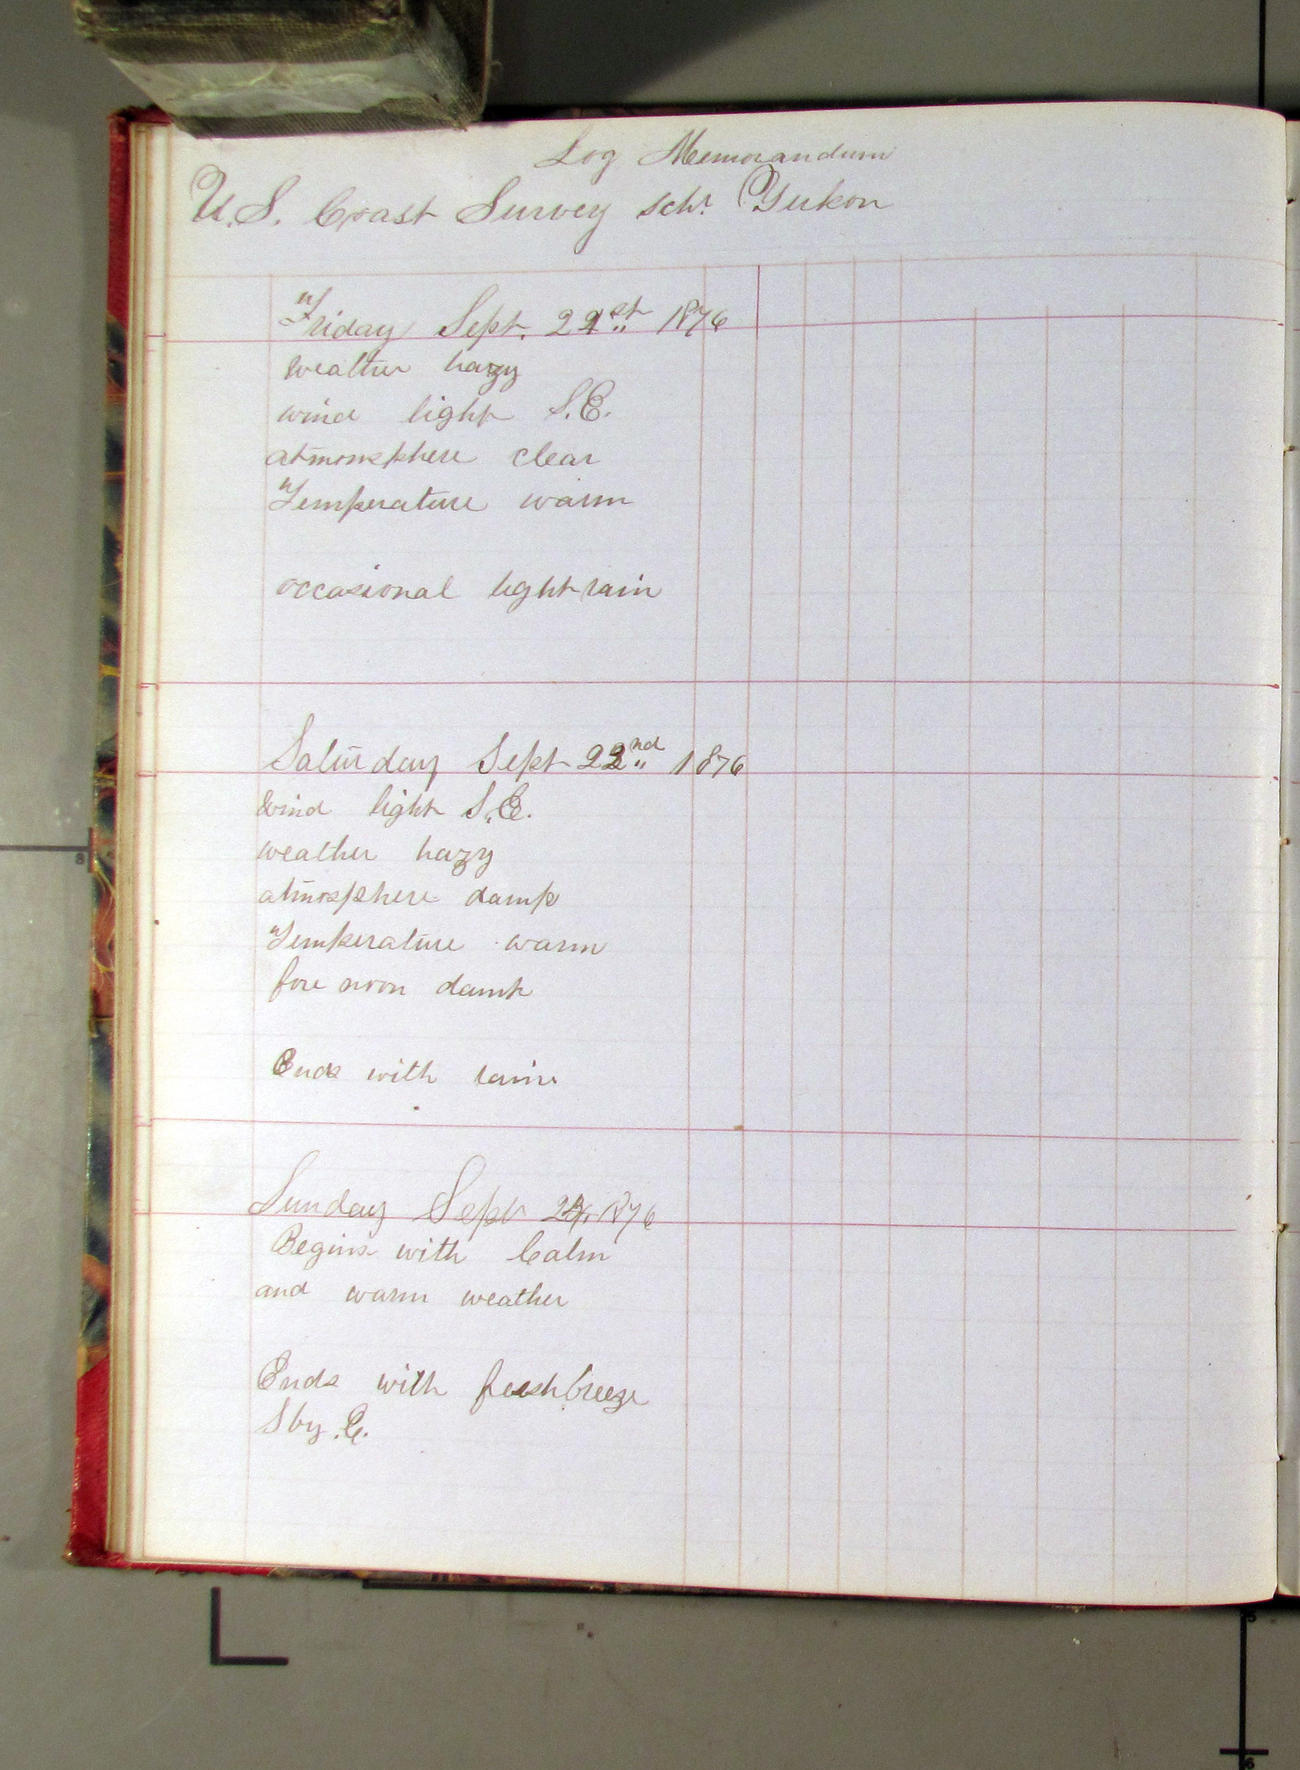 Log Memorandum
U.S. Coast Survey schr Yukon
Friday Sept. 22st 1876
Weather hazy
wind light S.E.
atmonsphere clear
Temperature warm
occasional light rain
Saturday Sept 23nd 1876
Wind light S.E.
weather hazy
atmosphere damp
Temperature warm
fore noon damp
Ends with rain
Sunday Sept 24, 1876
Begins with Calm
and warm weather
Ends with fresh breeze
S by E.
8
5
6